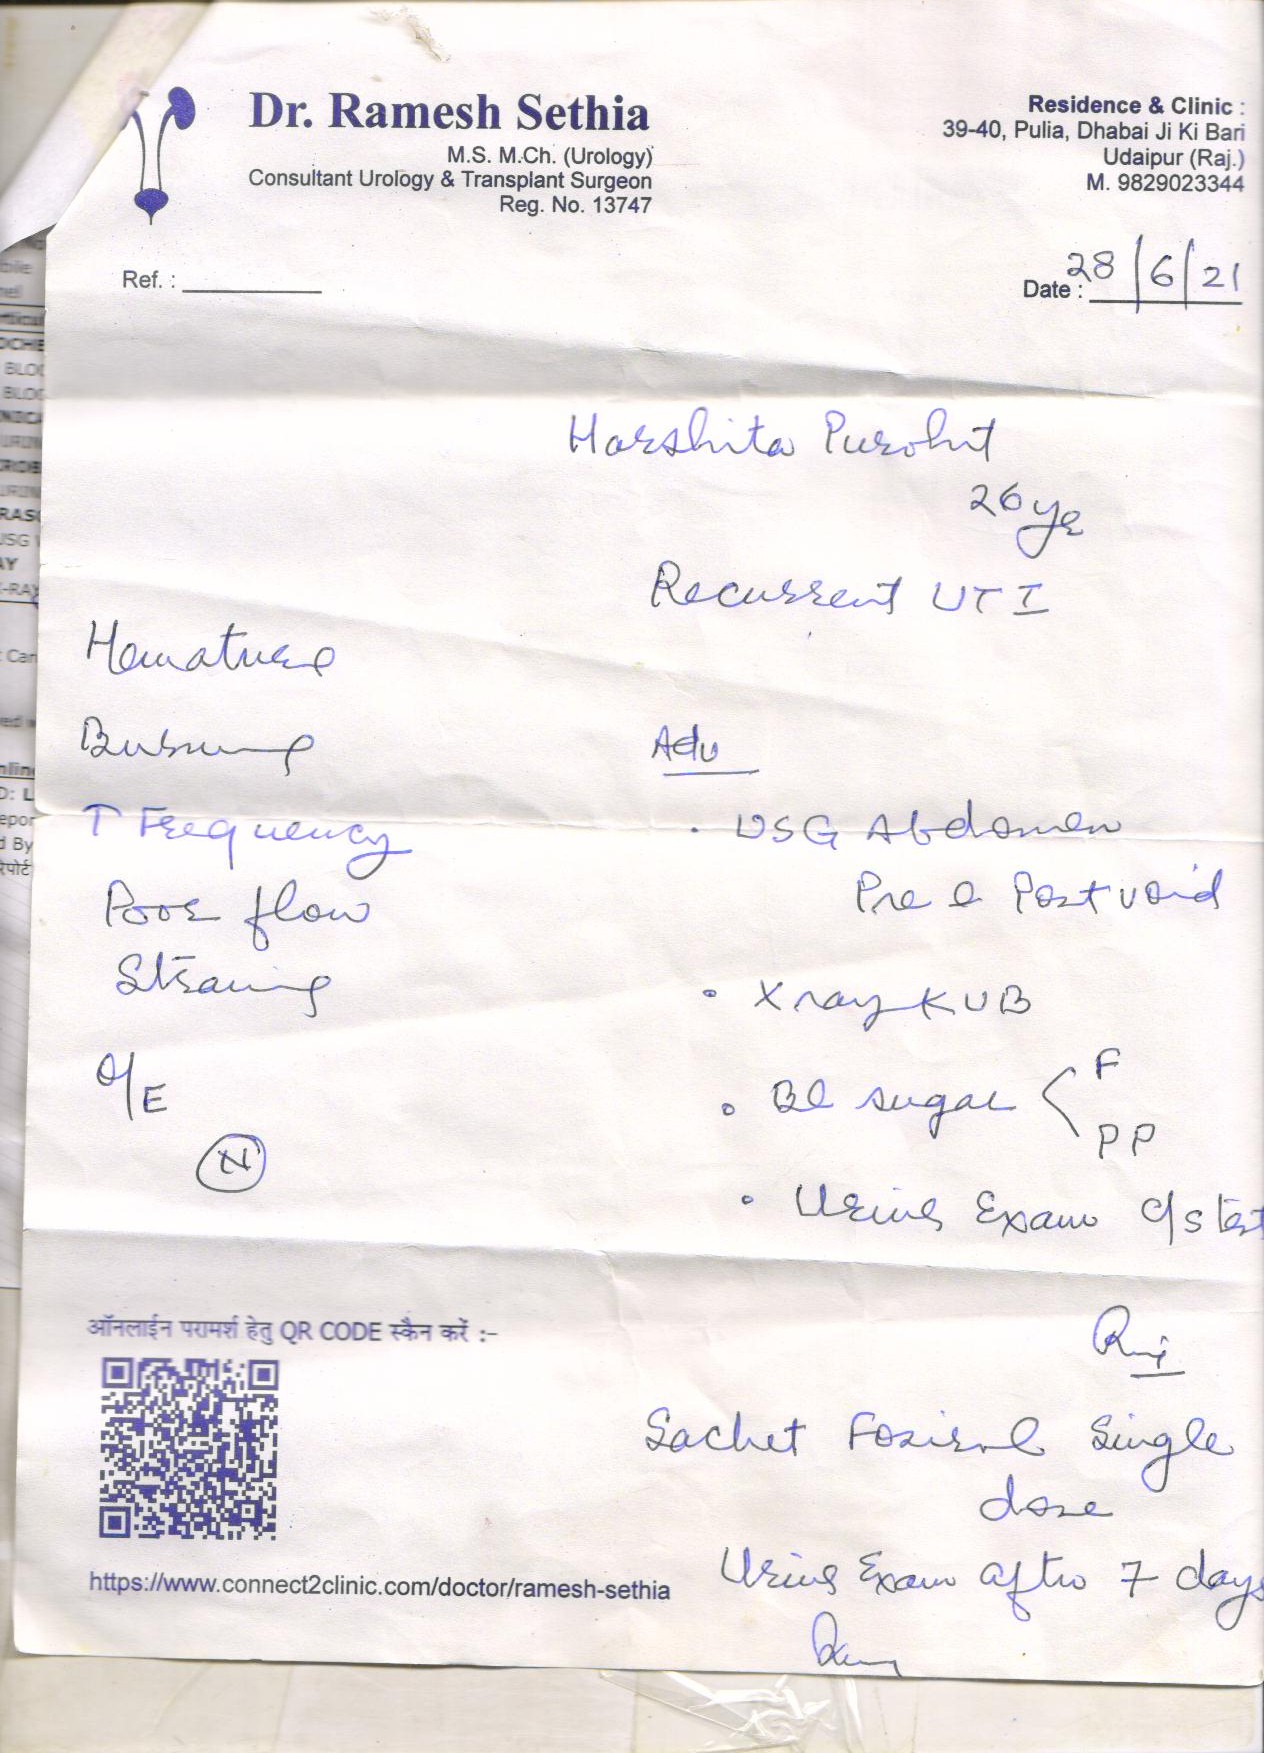 Dr. Ramesh Sethia
M.S. M.Ch. (Urology)
Consultant Urology & Transplant Surgeon
Reg. No. 13747
Residence & Clinic :
39-40, Pulia, Dhabai Ji Ki Bari
Udaipur (Raj.)
M. 9829023344
Ref. :
Date : 28/6/21
Harshita Purohit
26 yr
Recurrent UTI
Hematuria
Burning
↑ Frequency
Poor flow
Straining
O/E
N
Adv
. USG Abdomen
Pre & Post void
. X ray KUB
. Bl sugar < F
PP
. Urine Exam C/S test
Sachet Fosirol Single
dose
Urine Exam after 7 days
ऑनलाईन परामर्श हेतु QR CODE स्कैन करें :-
https://www.connect2clinic.com/doctor/ramesh-sethia
BLOO
BLOO
USG
X-RAY
रिपोर्ट